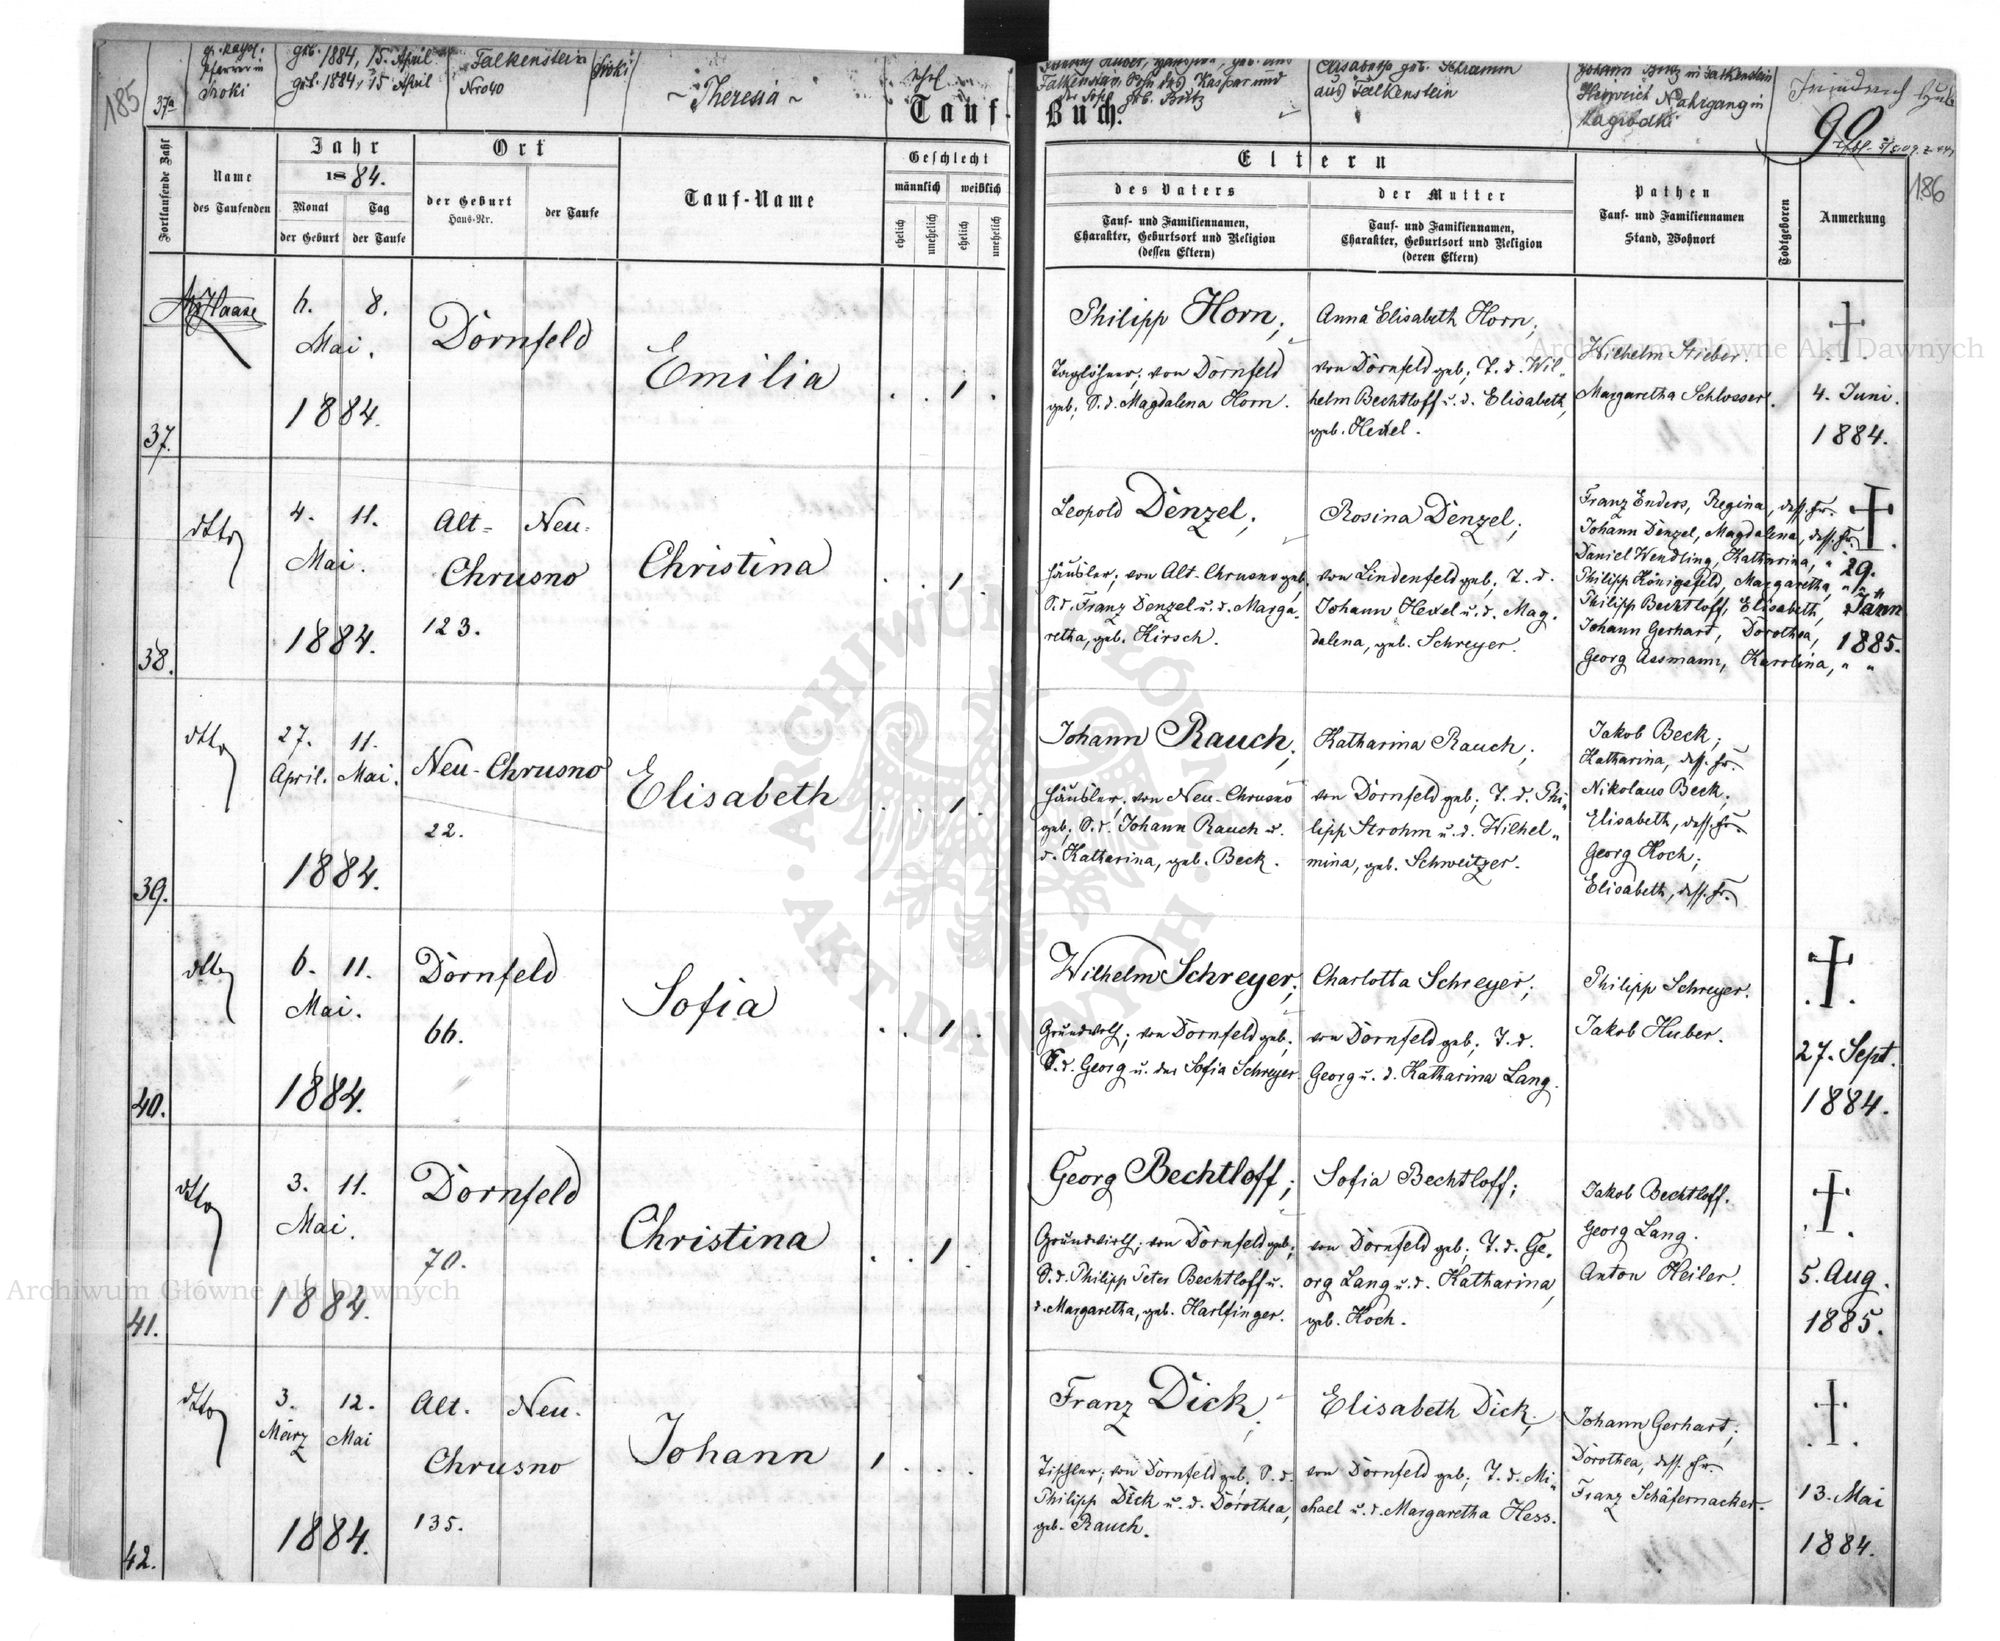 185
37a
gr. kathol.
Pfarrer in
Sroki
geb. 1884, 15. April
get. 1884, 15 April
Falkenstein
Nro 40
Sroki
~ Theresia ~
Falkenstein, Sohn des Kaspar und
geb. Bütz
Elisabeth geb. Schramm
aus Falkenstein
Johann Bütz in Falkenstein
Heinrich Nahrgang in
Zagrodki
Tauf-Buch.
90
186
Fortlaufende Zahl
Name
des Taufenden
Jahr
1884.
Monat
der Geburt
Tag
der Taufe
Ort
der Geburt
Haus-Nr.
der Taufe
Tauf-Name
Geschlecht
männlich
weiblich
ehelich
unehelich
ehelich
unehelich
Eltern
des Vaters
Tauf- und Familiennamen,
Charakter, Geburtsort und Religion
(dessen Eltern)
der Mutter
Tauf- und Familiennamen,
Charakter, Geburtsort und Religion
(deren Eltern)
Pathen
Tauf- und Familiennamen
Stand, Wohnort
Todtgeboren
Anmerkung
37.
Haase
6. 8.
Mai.
1884.
Dornfeld
Emilia
. . 1 .
Philipp Horn;
Taglöhner; von Dornfeld
geb; S. d. Magdalena Horn.
Anna Elisabeth Horn;
von Dornfeld geb; T. d. Wil-
helm Bechtloff u. d. Elisabeth,
geb. Hexel.
Wilhelm Stieber.
Margaretha Schlosser.
4. Juni.
1884.
38.
dtto
4. 11.
Mai.
1884.
Alt- Neu-
Chrusno
123.
Christina
. . 1 .
Leopold Denzel;
Häusler; von Alt-Chrusno geb;
S. d. Franz Denzel u. d. Marga-
retha, geb. Kirsch.
Rosina Denzel;
von Lindenfeld geb; T. d.
Johann Hexel u. d. Mag-
dalena, geb. Schreyer.
Franz Enders, Regina, dess. Fr.
Johann Denzel, Magdalena, dess. Fr.
Daniel Wendling, Katharina, "
Philipp Königsfeld, Margaretha, " "
Philipp Bechtloff, Elisabeth, " "
Johann Gerhart, Dorothea,
Georg Assmann, Karolina, " "
29.
Jänn
1885.
39.
dtto
27. 11.
April. Mai.
1884.
Neu-Chrusno
22.
Elisabeth
. . 1 .
Johann Rauch;
Häusler; von Neu-Chrusno
geb; S. d. Johann Rauch u.
d. Katharina, geb. Beck.
Katharina Rauch;
von Dornfeld geb; T. d. Phi-
lipp Strohm u. d. Wilhel-
mina, geb. Schweitzer.
Jakob Beck;
Katharina, dess. Fr.
Nikolaus Beck;
Elisabeth, dess. Fr.
Georg Koch;
Elisabeth, dess. Fr.
40.
dtto
6. 11.
Mai.
1884.
Dornfeld
66.
Sofia
. . 1 .
Wilhelm Schreyer;
Grundwirth; von Dornfeld geb;
S. d. Georg u. der Sofia Schreyer.
Charlotta Schreyer;
von Dornfeld geb; T. d.
Georg u. d. Katharina Lang.
Philipp Schreyer.
Jakob Huber.
27. Sept.
1884.
41.
dtto
3. 11.
Mai.
1884.
Dornfeld
70.
Christina
. . 1 .
Georg Bechtloff;
Grundwirth; von Dornfeld geb;
S. d. Philipp Peter Bechtloff u.
d. Margaretha, geb. Harlfinger.
Sofia Bechtloff;
von Dornfeld geb. T. d. Ge-
org Lang u. d. Katharina,
geb. Koch.
Jakob Bechtloff.
Georg Lang.
Anton Keiler.
5. Aug.
1885.
42.
dtto
3. 12.
März Mai
1884.
Alt. Neu-
Chrusno
135.
Johann
1 . . .
Franz Dick;
Tischler; von Dornfeld geb; S. d.
Philipp Dick u. d. Dorothea,
geb. Rauch.
Elisabeth Dick;
von Dornfeld geb; T. d. Mi-
chael u. d. Margaretha Hess.
Johann Gerhart;
Dorothea, dess. Fr.
Franz Schäfernacker.
13. Mai
1884.
Archiwum Główne Akt Dawnych
Archiwum Główne Akt Dawnych
ARCHIWUM GŁÓWNE AKT DAWNYCH